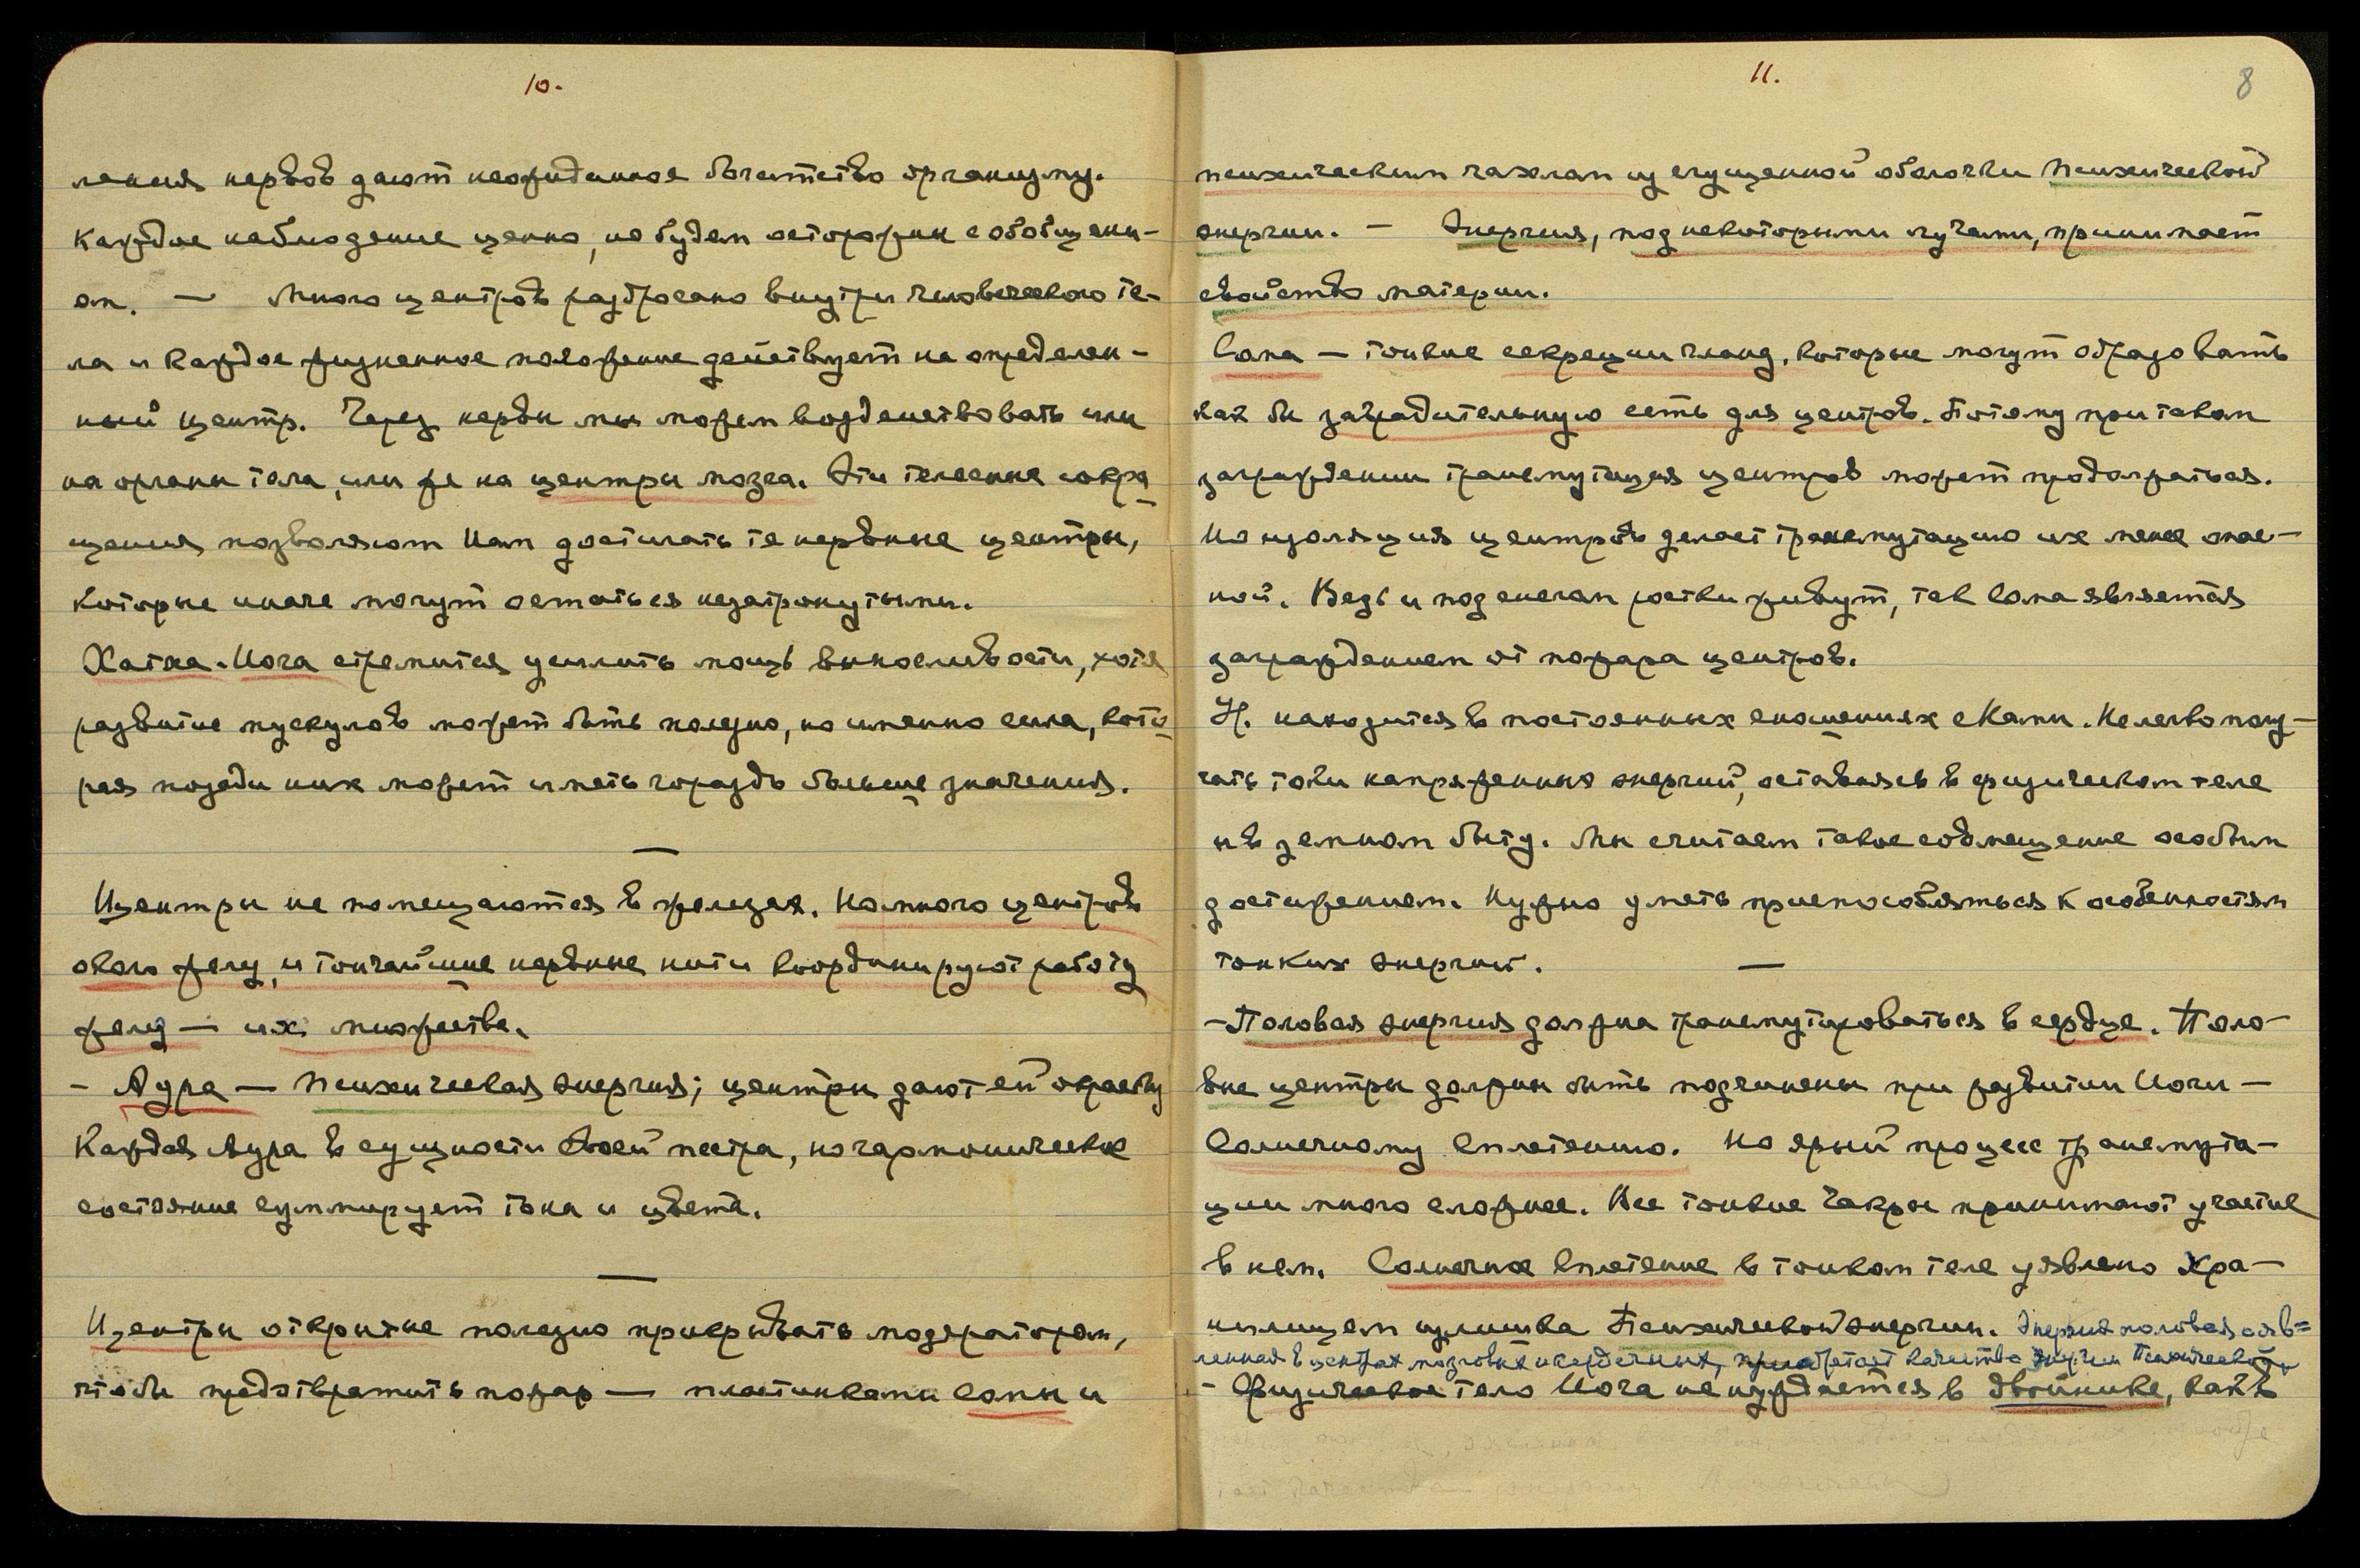 10.
ления нервов дают неожиданное богатство организму.
Каждое наблюдение ценно, но будем осторожны с обобщени-
ем. — Много центров разбросано внутри человеческого те-
ла и каждое жизненное положение действует на определен-
ный центр. Через нервы мы можем воздействовать или
на органы тела, или же на центры мозга. Эти телесные сокра
щения позволяют Нам достигать те нервные центры,
которые иначе могут остаться незатронутыми.
Хатха-Йога стремится усилить мощь выносливости, хотя
развитие мускулов может быть полезно, но именно сила, кото
рая позади них может иметь гораздо больше значения.
—
Центры не помещаются в железах. Но много центров
около желез, и тончайшие нервные нити координируют работу
желез — их множества.
- Аура — психическая энергия; центры дают ей окраску
Каждая Аура в сущности своей пестра, но гармоническое
состояние суммирует тона и цвета.
—
Центры открытые полезно прикрывать модератором,
чтобы предотвратить пожар — пластинками сомы и
11.
8
психическим чехлом из сгущенной оболочки психической
энергии. — Энергия, под некоторыми лучами, принимает
свойство материи.
Сома — тонкие секреции гланд, которые могут образовать
как бы заградительную сеть для центров. Потому при таком
заграждении трансмутация центров может продолжаться.
Но изоляция центров делает трансмутацию их менее опас-
ной. Ведь и под снегом ростки живут, так Сома является
заграждением от пожара центров.
У. находится в постоянных сношениях с Нами. Нелегко полу-
чать токи напряженных энергий, оставаясь в физическом теле
и в земном быту. Мы считаем такое совмещение особым
достижением. Нужно уметь приспособляться к особенностям
тонких энергий. —
- Половая энергия должна трансмутироваться в сердце. Поло-
вые центры должны быть подчинены при развитии Йоги —
Солнечному Сплетению. Но ярый процесс трансмута-
ции много сложнее. Все тонкие Чакры принимают участие
в нем. Солнечное Сплетение в тонком теле уявлено Хра-
нилищем излишка Психической энергии. Энергия половая, явв=
ленная в центрах мозговых и сердечных, приобретает качество энергии Психической.
- Физическое тело Йога не нуждается в двойнике, как в